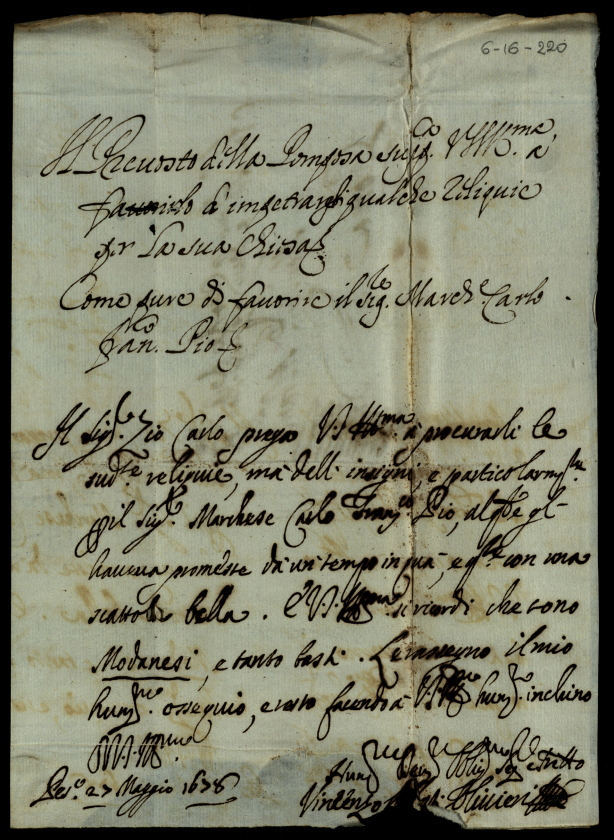 6-16-220
Il Prevosto della Pomposa V.S. Ill.ma à
favorirlo d'impetrargli qualche reliquie
per la sua Chiesa
Come pure di favorire il Sig.re March.e Carlo
Fran.co Pio
Il Sig.r Zio Carlo prega V.S. Ill.ma à procurarli le
sud.te reliquie, ma dell' insigni, e particolarm.te
p il Sig.r Marchese Carlo Franc.co Pio, al q.le gl'
haveva promesse da un tempo in quà, e q.ste con una
scattola bella. E V.S. Ill.ma si ricordi che sono
Modanesi, e tanto basti. Le rassegno il mio
hum.mo ossequio, e resto facendo à V.S. Ill.ma hum.mo inchino
D.V.S. Ill.ma
Pes.o 27 Maggio 1678
Hum.mo Dev.mo Obblig.mo Ser.e
Vincenzo Olivieri